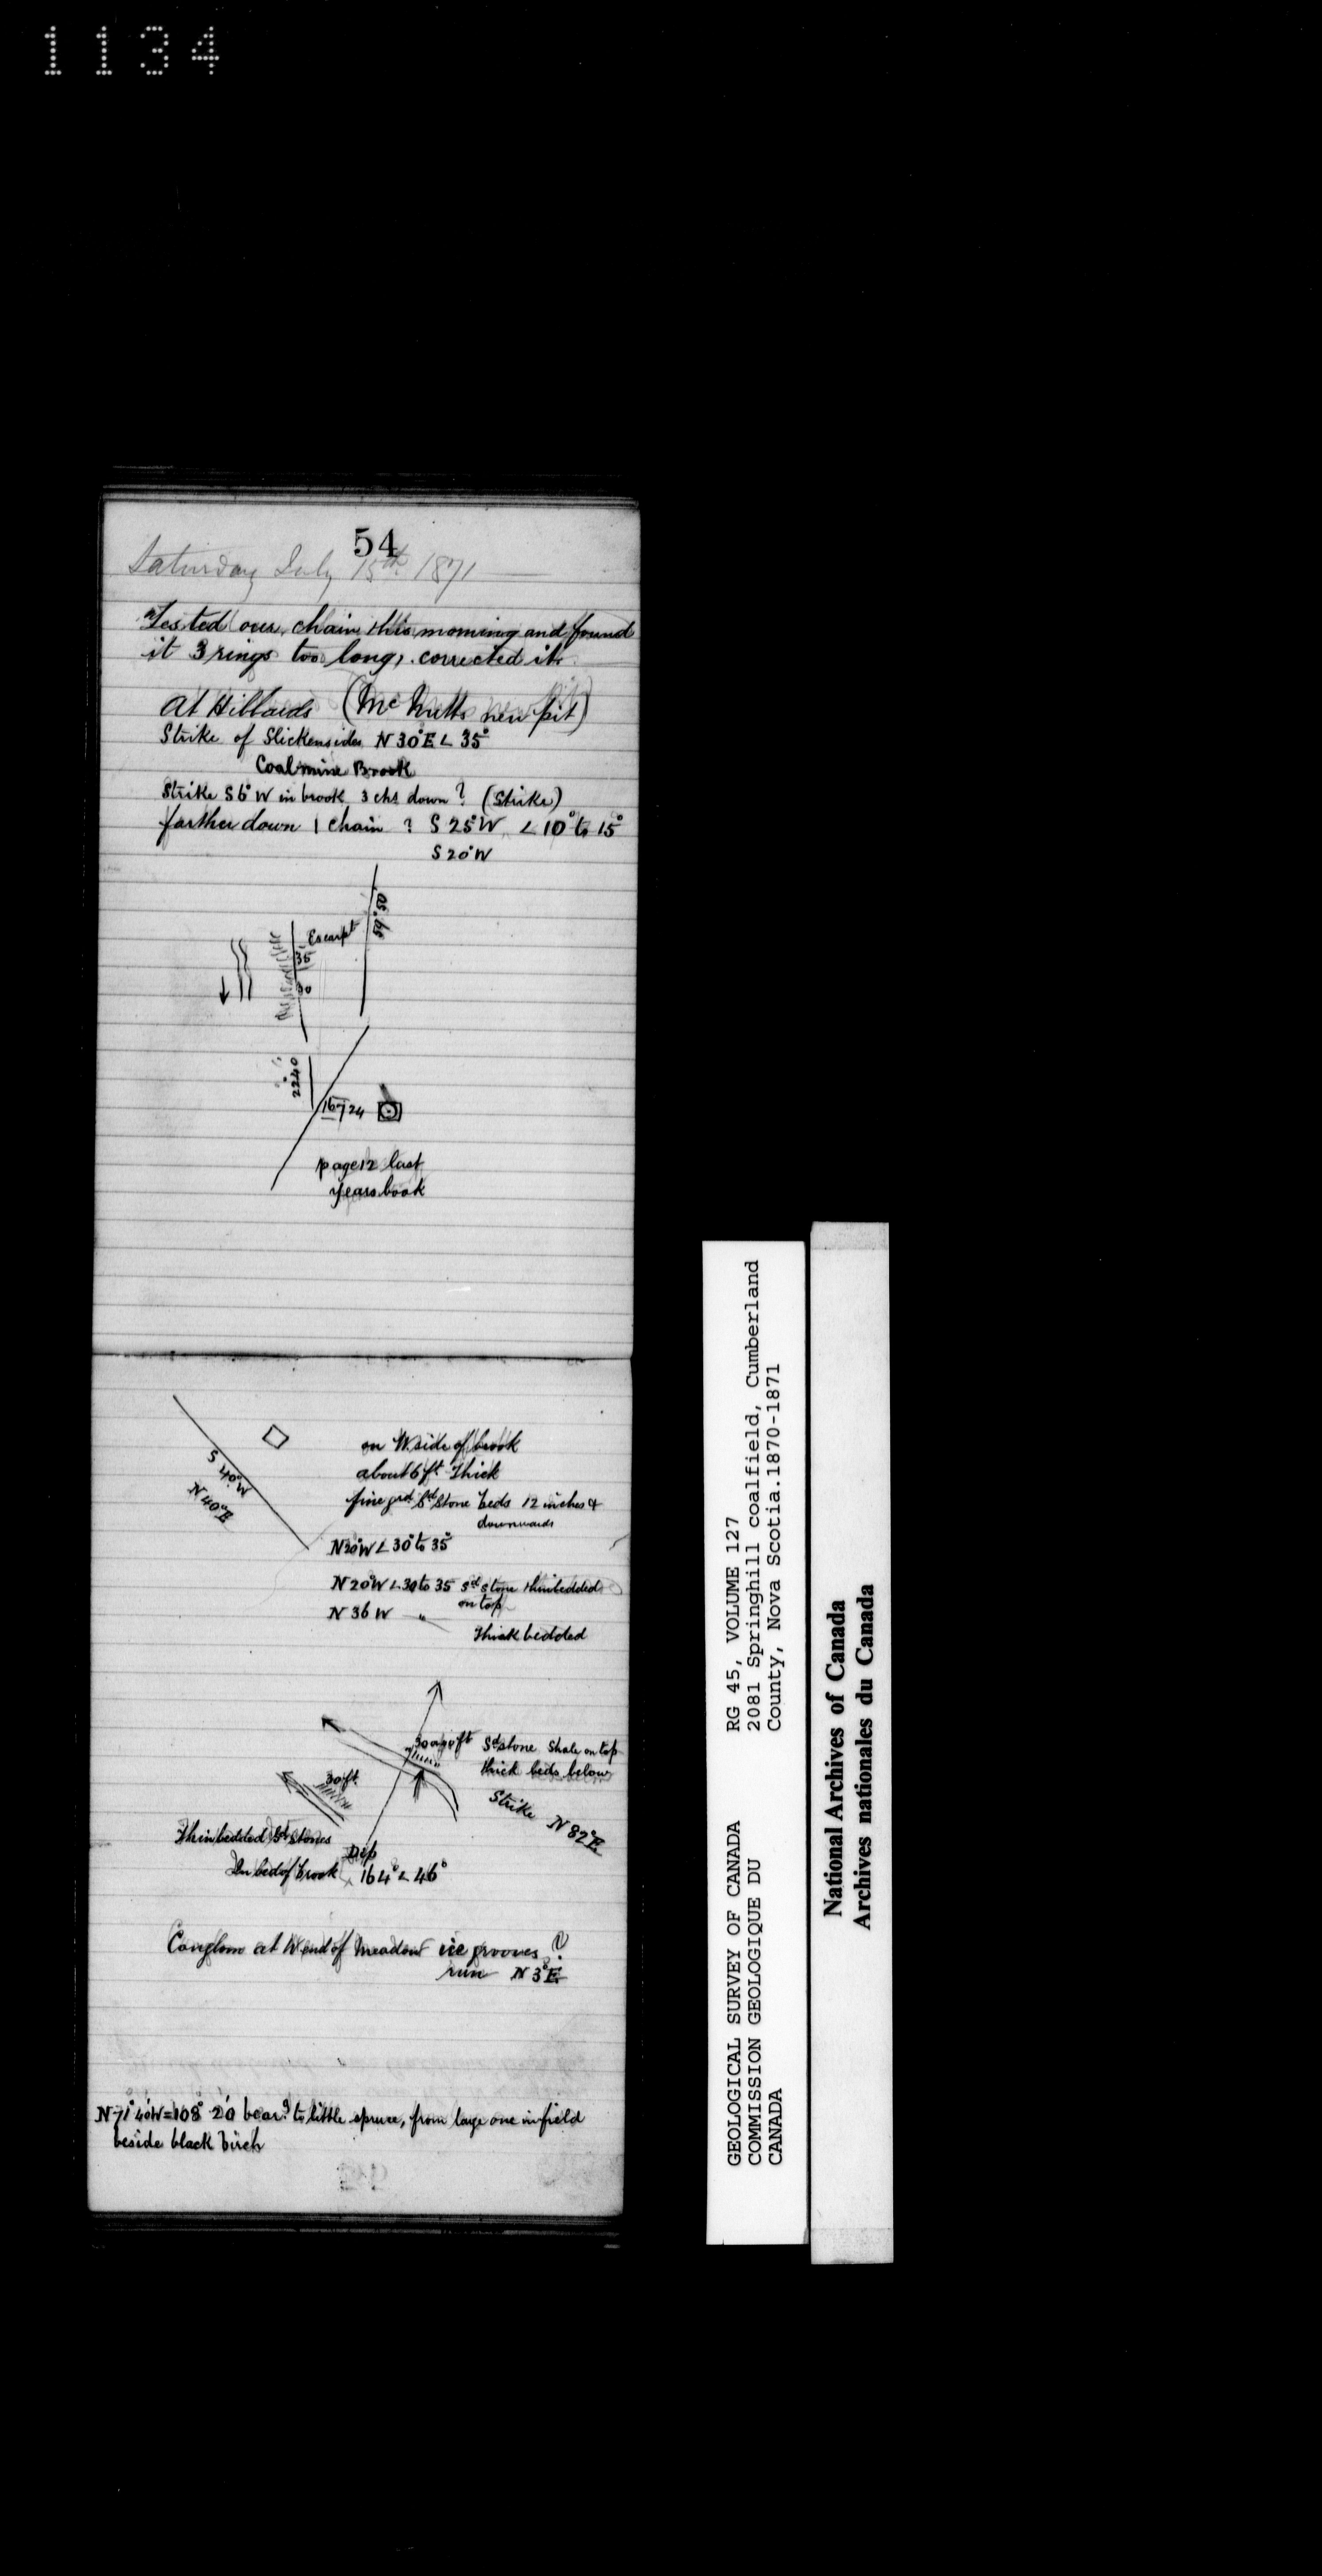 1134
54
Saturday July 15th 1871
Tested our chain this morning and found
it 3 rings too long, corrected it
At Hibbards (McNutts new pit)
Strike of Slickensides N 30° E ∠ 35°
Coal mine Brook
Strike S 6° W in brook 3 chs down? (Strike)
farther down 1 chain ? S 25° W ∠ 10° to 15°
S 20° W
59° 50'
Escarpt
35
30
2240
167 24
page 12 last
years book
S 40° W
N 40° E
on W. side of brook
about 6 ft thick
fine grd Sdstone beds 12 inches &
downwards
N 20° W ∠ 30° to 35°
N 20° W ∠ 30 to 35 Sdstone thinbedded
on top
N 36 W "
Thick bedded
30 or 40 ft Sdstone Shale on top
thick beds below
30 ft
Strike N 82° E
Thinbedded Sdstones
In bed of brook
Dip
164° ∠ 46°
Conglom at W end of Meadow ice grooves ?
run N 3° E
N 71° 40' W = 108° 20' bearg to little spruce, from large one in field
beside black birch
GEOLOGICAL SURVEY OF CANADA
COMMISSION GEOLOGIQUE DU
CANADA
RG 45, VOLUME 127
2081 Springhill coalfield, Cumberland
County, Nova Scotia.1870-1871
National Archives of Canada
Archives nationales du Canada